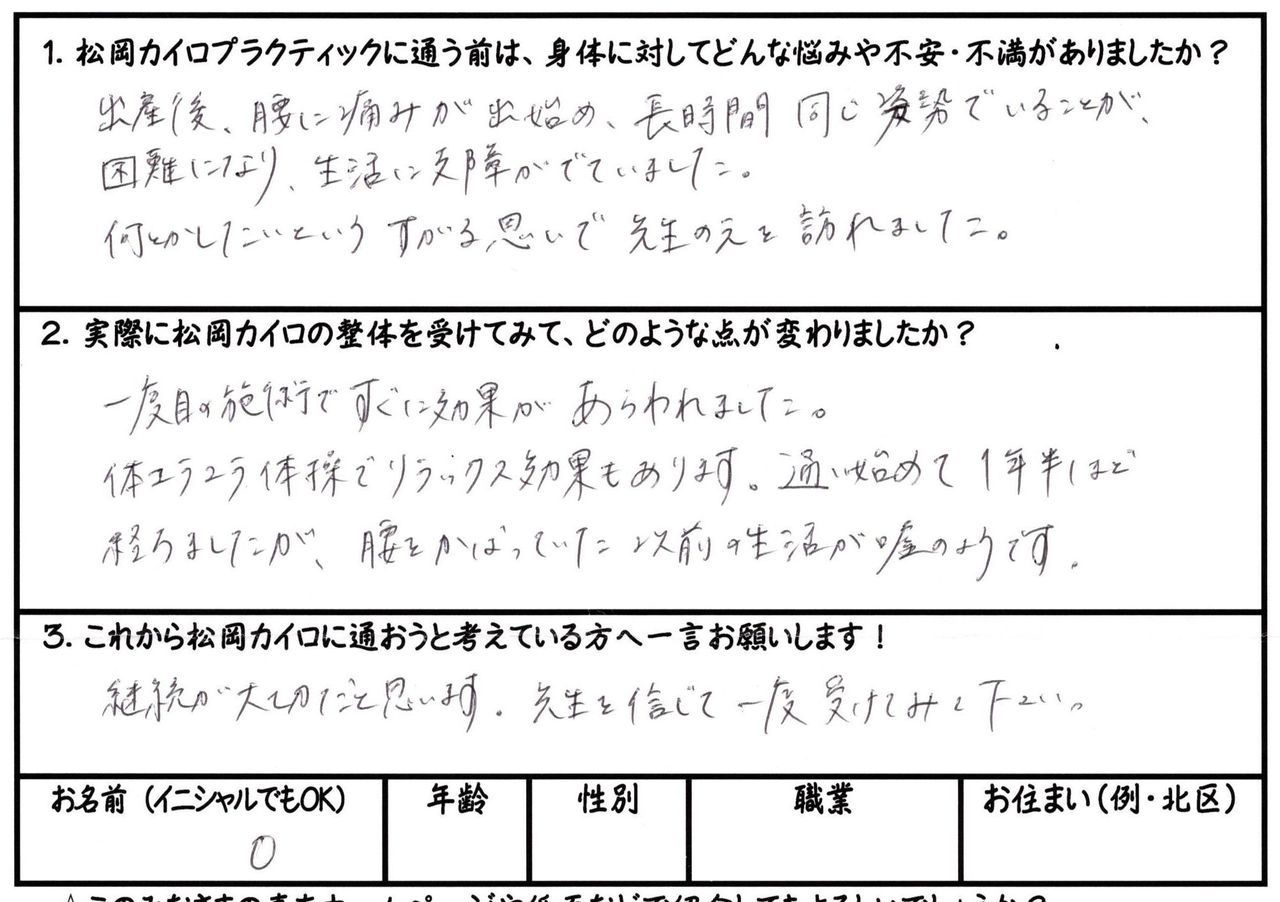 1. 松岡カイロプラクティックに通う前は、身体に対してどんな悩みや不安・不満がありましたか?
出産後、腰に痛みが出始め、長時間 同じ姿勢でいることが、
困難になり、生活に支障がでていました。
何とかしたいという すがる思いで 先生の元を訪れました。
2. 実際に松岡カイロの整体を受けてみて、どのような点が変わりましたか?
一度目の施術ですぐに効果が あらわれました。
体ユラユラ体操でリラックス効果もあります。通い始めて1年半ほど
経ちましたが、腰をかばっていた以前の生活が嘘のようです。
3. これから松岡カイロに通おうと考えている方へ一言お願いします!
継続が大切だと思います。先生を信じて一度受けてみて下さい。
お名前(イニシャルでもOK) 年齢 性別 職業 お住まい(例・北区)
O